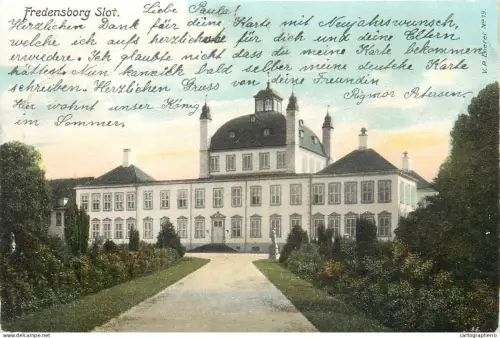 Fredensborg Slot.
Liebe Paula!
Herzlichen Dank für deine Karte mit Neujahrswunsch,
welche ich aufs herzlichste für dich und deine Eltern
erwiedere. Ich glaubte nicht dass du meine Karte bekommen
hättest. Nun kann ich bald selber meine deutche Karte
schreiben. Herzlichen Gruss von deine Freundin
Rigmor Petersen.
Hier wohnt unser König
im Sommer.
V. P. Eneret No 19.
cartographerpro.com